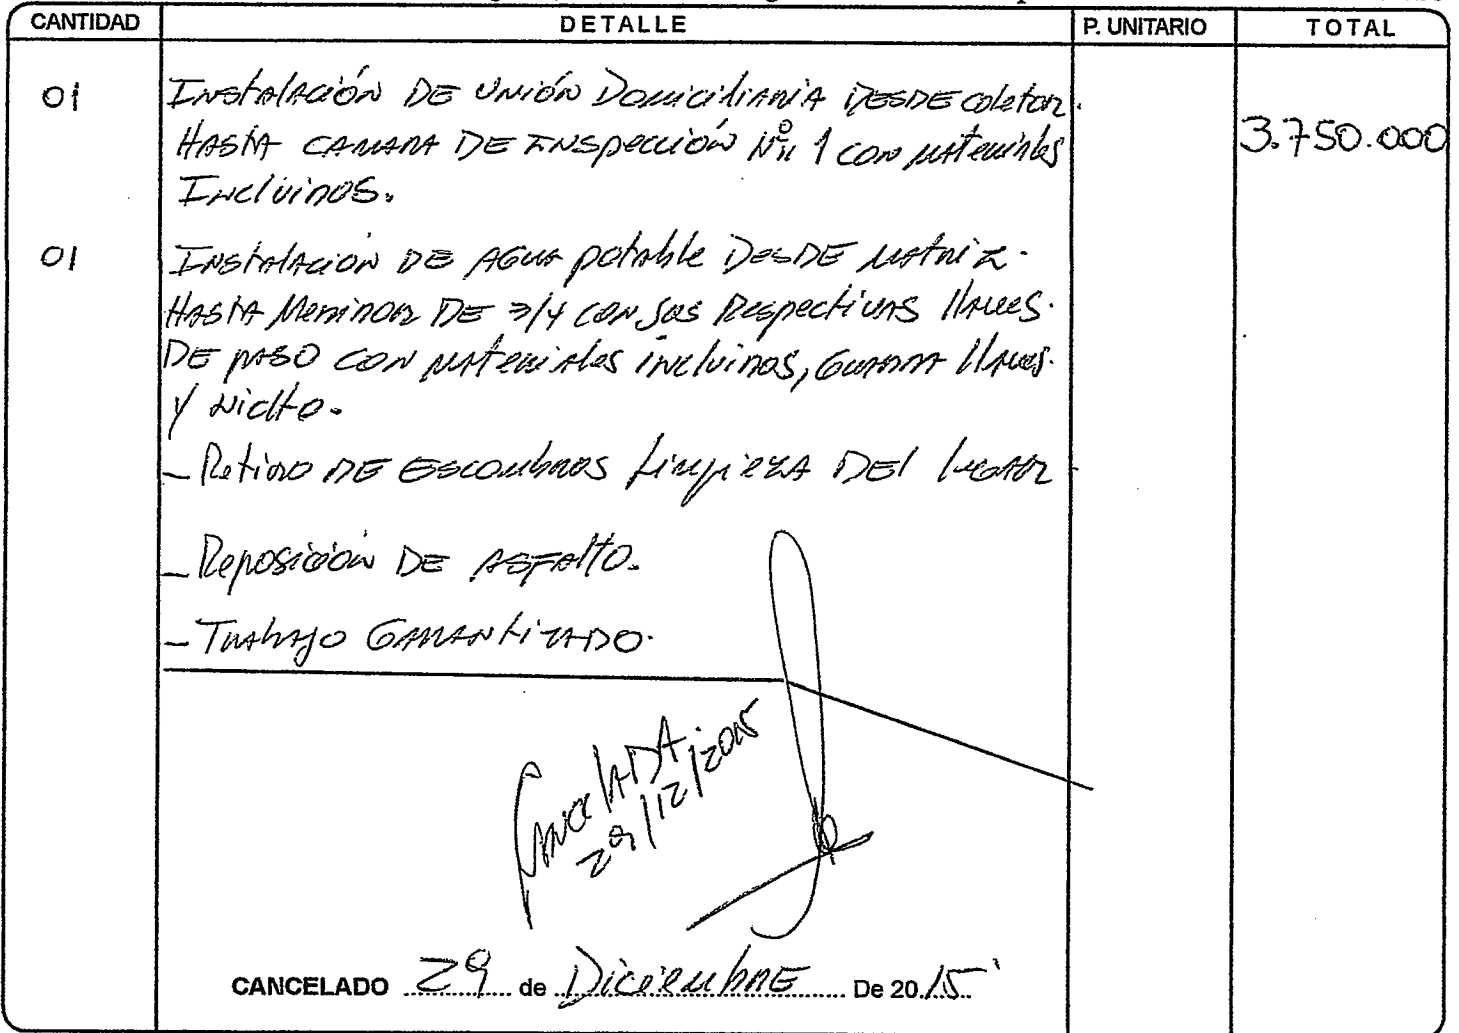 CANTIDAD DETALLE P. UNITARIO TOTAL
01 Instalación DE Unión Domiciliaria DESDE coletor.
HASTA CAMARA DE Inspección Nº 1 con materiales 3.750.000
Incluidos.
01 Instalacion DE AGUA potable DesDE matriz.
HASTA Medidor DE 3/4 con sus Respectivas llaves.
DE PASO CON materiales incluidos, Guarda llaves.
Y Nicho.
- Retiro DE Escombros Limpieza DEl lugar
- Reposición DE Asfalto.
- Trabajo GARANtizADO.
CancelADA
29/12/2015
CANCELADO 29 de Diciembre De 2015